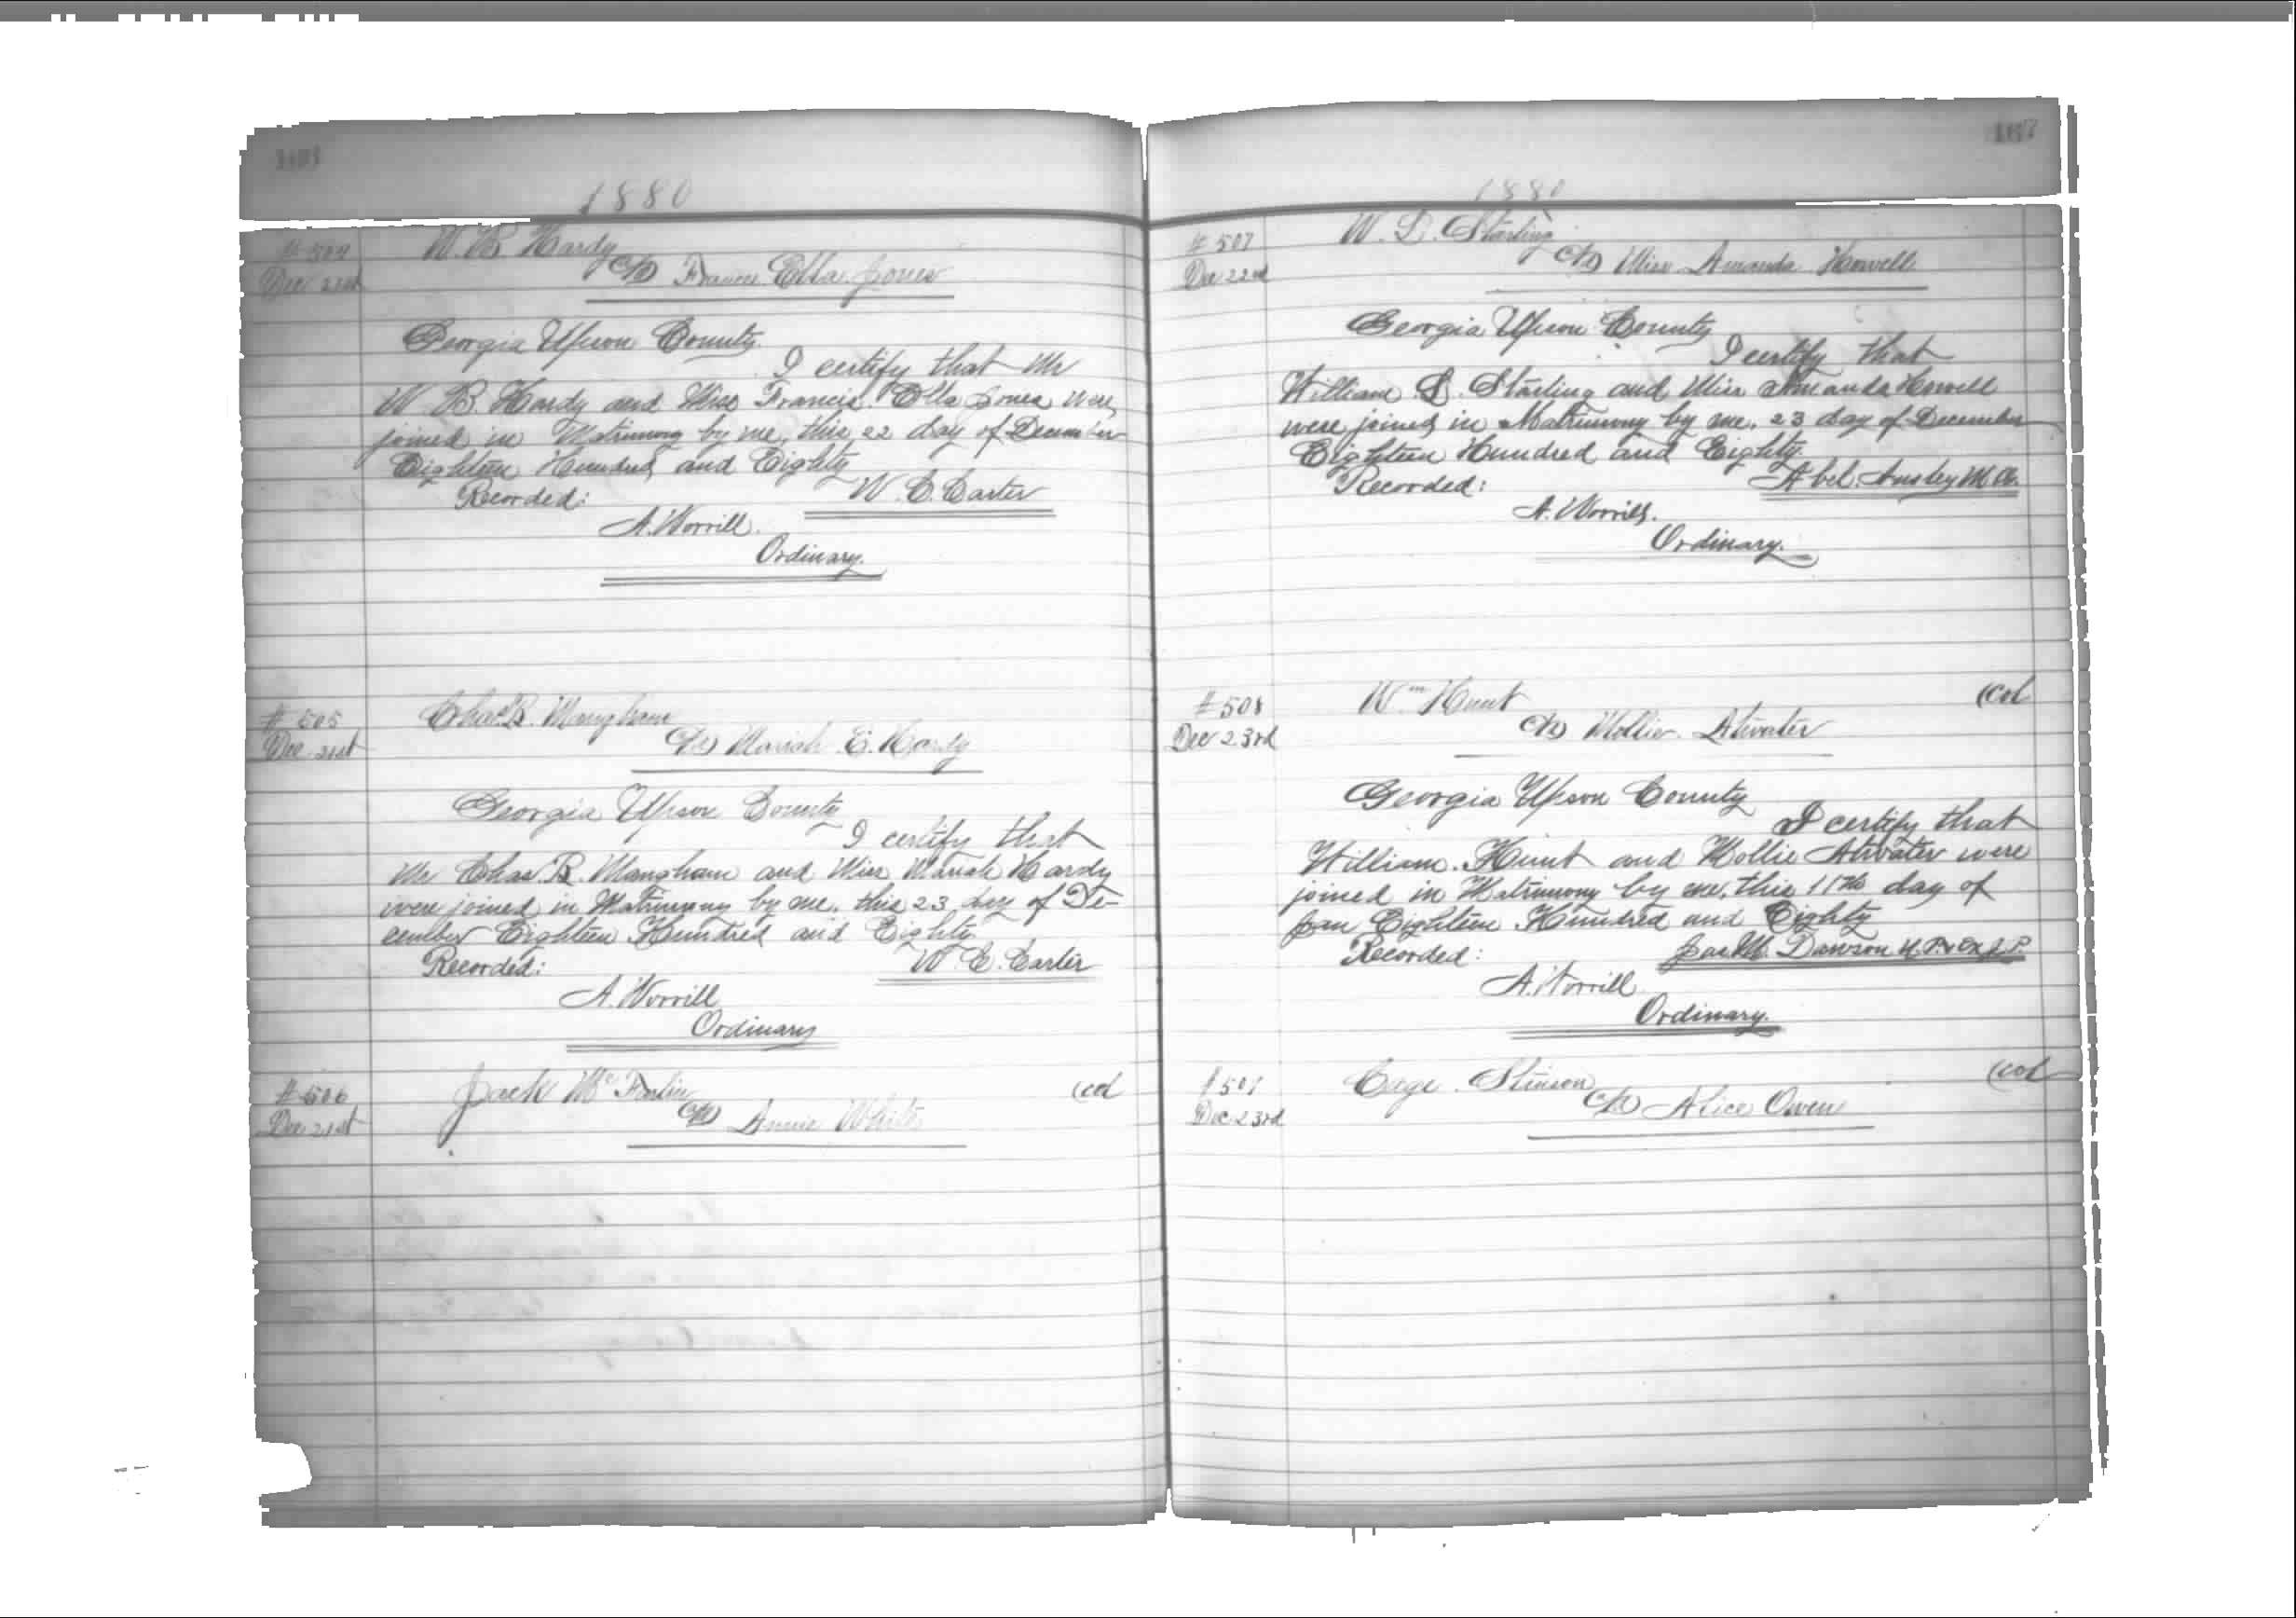 1880
W. B. Hardy
To Frances Ella Jones
Georgia Upson County.
I certify that Mr
W B. Hardy and Miss Francis. Ella Jones were
joined in Matrimony by me, this 22 day of December
Eighteen Hundred and Eighty
Recorded:
W. E. Carter
A. Worrill.
Ordinary.
# 505
Dec 21st
Chas B. Mangham
To Mariah E. Hardy
Georgia Upson County
I certify that
Mr Chas. B. Mangham and Miss Mariah Hardy
were joined in Matrimony by me, this 23 day of De-
cember Eighteen Hundred and Eighty
Recorded:
W E. Carter
A. Worrill
Ordinary
# 506
Dec 21st
Jack Mc Farlin
(col
To Annie White
167
1880
# 507
Dec 22nd
W. S. Starling
To Miss Amanda Howell
Georgia Upson County
I certify that
William S. Starling and Miss Amanda Howell
were joined in Matrimony by me, 23 day of December
Eighteen Hundred and Eighty.
Recorded:
Abel Ansley M.G.
A. Worrill.
Ordinary.
# 508
Dec 23rd
Wm Hunt
(col
To Mollie. Atwater
Georgia Upson County
I certify that
William. Hunt and Mollie Atwater were
joined in Matrimony by me, this 11th day of
Jan Eighteen Hundred and Eighty
Recorded:
Jas. M. Dawson N.P. & Ex J.P.
A. Worrill
Ordinary.
Dec 23rd
Cage. Stinson
(col
To Alice Owen